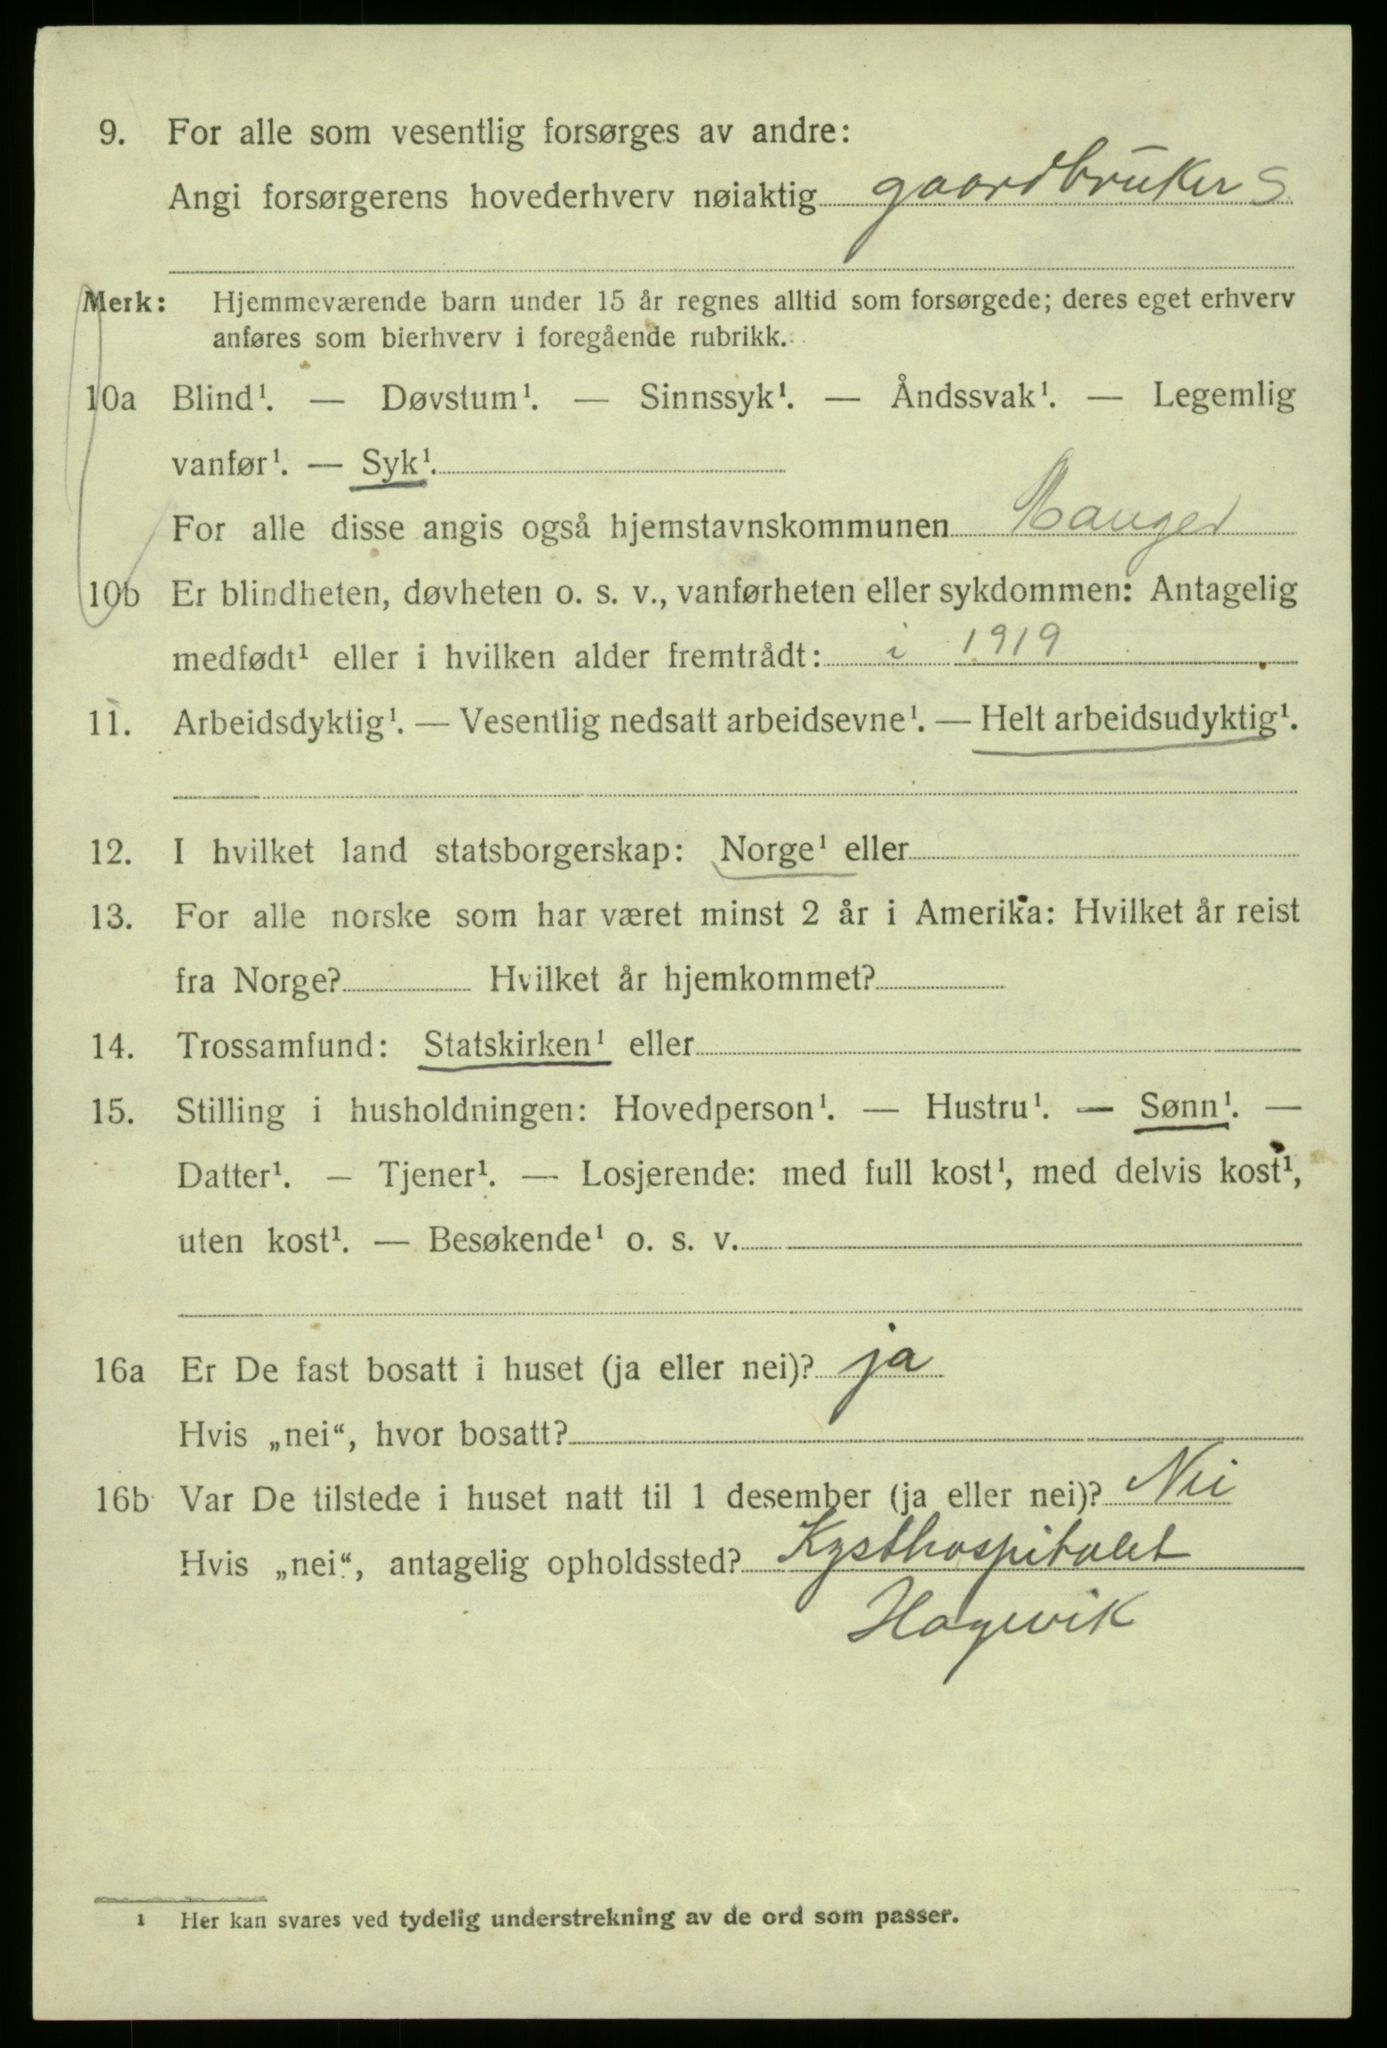 9. For alle som vesentlig forsørges av andre:
Angi forsørgerens hovederhverv nøiaktig gaardbruker S
Merk: Hjemmeværende barn under 15 år regnes alltid som forsørgede; deres eget erhverv
anføres som bierhverv i foregående rubrikk.
10a Blind¹. — Døvstum¹. — Sinnssyk¹. — Åndssvak¹. — Legemlig
vanfør¹. — Syk¹.
For alle disse angis også hjemstavnskommunen Manger
10b Er blindheten, døvheten o. s. v., vanførheten eller sykdommen: Antagelig
medfødt¹ eller i hvilken alder fremtrådt: i 1919
11. Arbeidsdyktig¹. — Vesentlig nedsatt arbeidsevne¹. — Helt arbeidsudyktig¹.
12. I hvilket land statsborgerskap: Norge¹ eller
13. For alle norske som har været minst 2 år i Amerika: Hvilket år reist
fra Norge? Hvilket år hjemkommet?
14. Trossamfund: Statskirken¹ eller
15. Stilling i husholdningen: Hovedperson¹. — Hustru¹. — Sønn¹. —
Datter¹. — Tjener¹. — Losjerende: med full kost¹, med delvis kost¹,
uten kost¹. — Besøkende¹ o. s. v.
16a Er De fast bosatt i huset (ja eller nei)? ja
Hvis „nei“, hvor bosatt?
16b Var De tilstede i huset natt til 1 desember (ja eller nei)? Nei
Hvis „nei“, antagelig opholdssted? Kysthospitalet
Hagevik
¹ Her kan svares ved tydelig understrekning av de ord som passer.